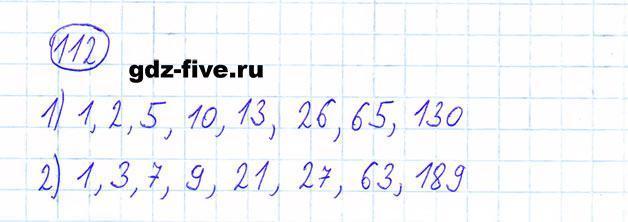 112
gdz-five.ru
1) 1, 2, 5, 10, 13, 26, 65, 130
2) 1, 3, 7, 9, 21, 27, 63, 189